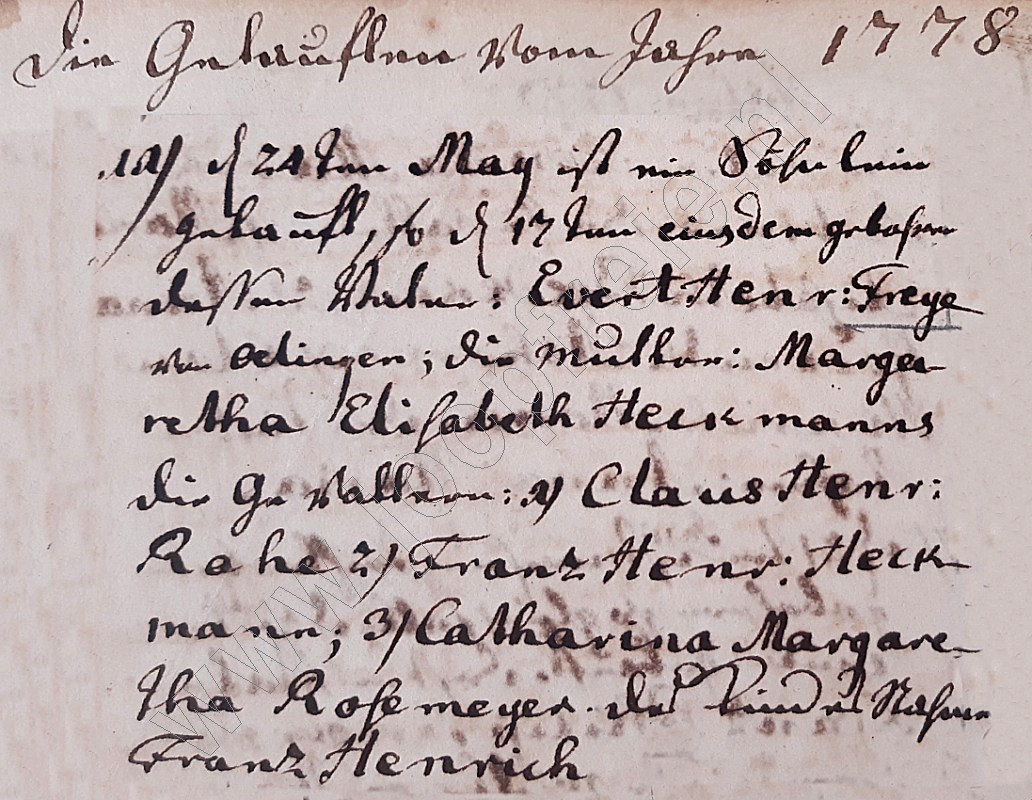 Die Getauften vom Jahre 1778
11) d 24ten May ist ein Söhnlein
getauft, so d 17ten eiusdem gebohren
dessen Vater: Evert Henr: Freye
von Oelingen; die Mutter: Marga-
retha Elisabeth Heckmanns
die Gevattern: 1) Claus Henr:
Rahe 2) Franz Henr: Heck-
mann; 3) Catharina Margare-
tha Rosemeyer. des Kindes Nahme
Franz Henrich
www.loopfreie.nl